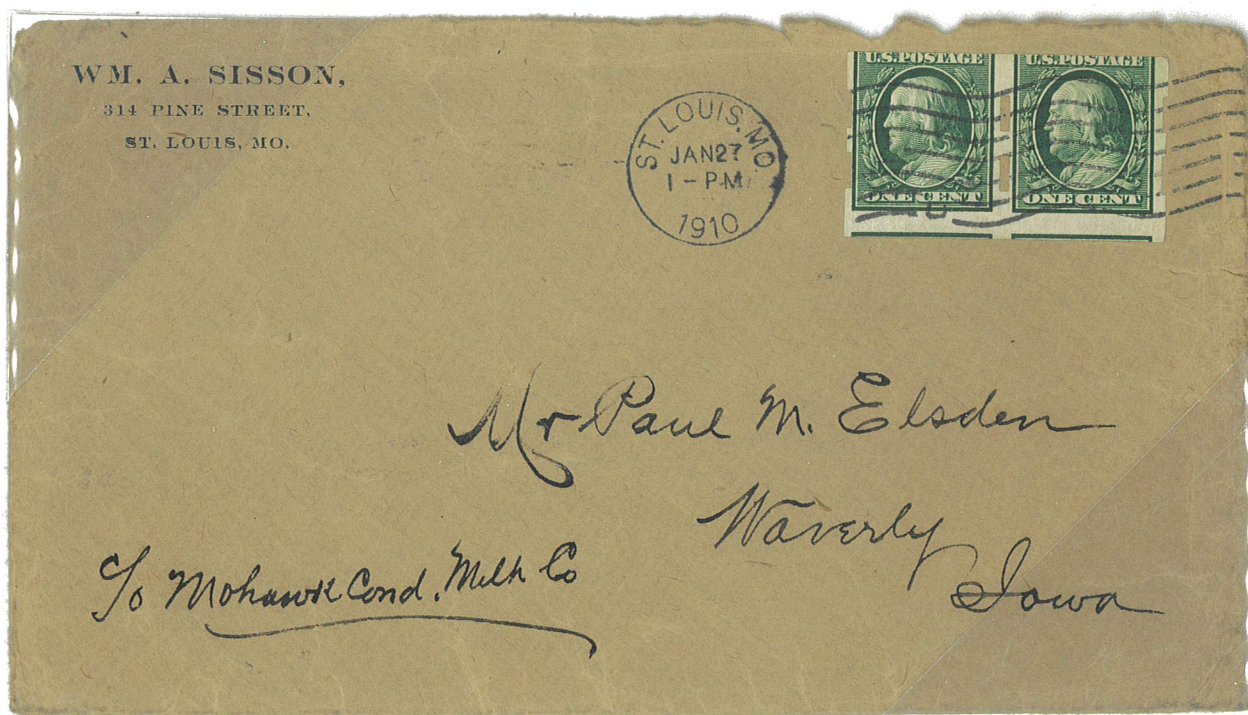 WM. A. SISSON,
314 PINE STREET,
ST. LOUIS, MO.
ST. LOUIS, MO.
JAN 27
1 - PM
1910
U.S. POSTAGE
ONE CENT
U.S. POSTAGE
ONE CENT
Mr Paul M. Elsden
Waverly
Iowa
c/o Mohawk Cond. Milk Co